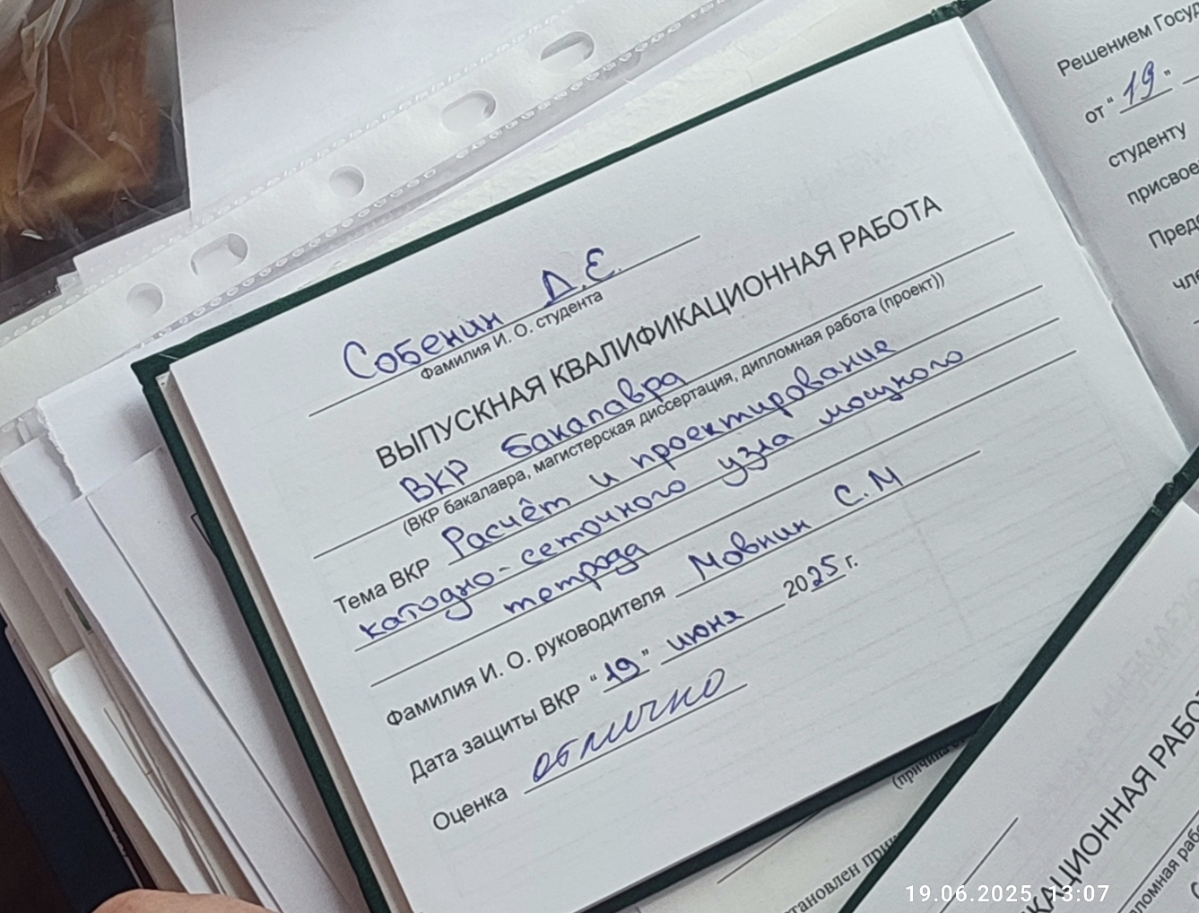 Собенин Д.Е.
Фамилия И. О. студента
ВЫПУСКНАЯ КВАЛИФИКАЦИОННАЯ РАБОТА
ВКР бакалавра
(ВКР бакалавра, магистерская диссертация, дипломная работа (проект))
Тема ВКР Расчёт и проектирование
катодно-сеточного узла мощного
тетрода
Фамилия И. О. руководителя Мовнин С.М
Дата защиты ВКР "19" июня 2025 г.
Оценка отлично
Решением Госуд
от "19"
студенту
присвое
Пред
чле
(причина
тановлен при
КАЦИОННАЯ РАБОТ
пломная раб
19.06.2025 13:07